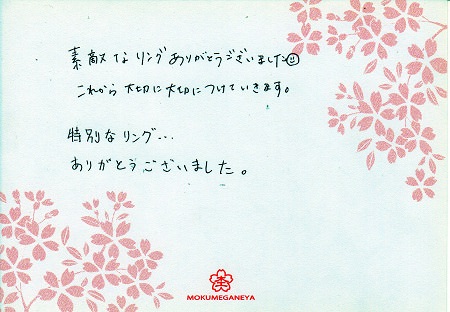 素敵なリングありがとうございました☺
これから大切に大切につけていきます。
特別なリング…
ありがとうございました。
杢
MOKUMEGANEYA